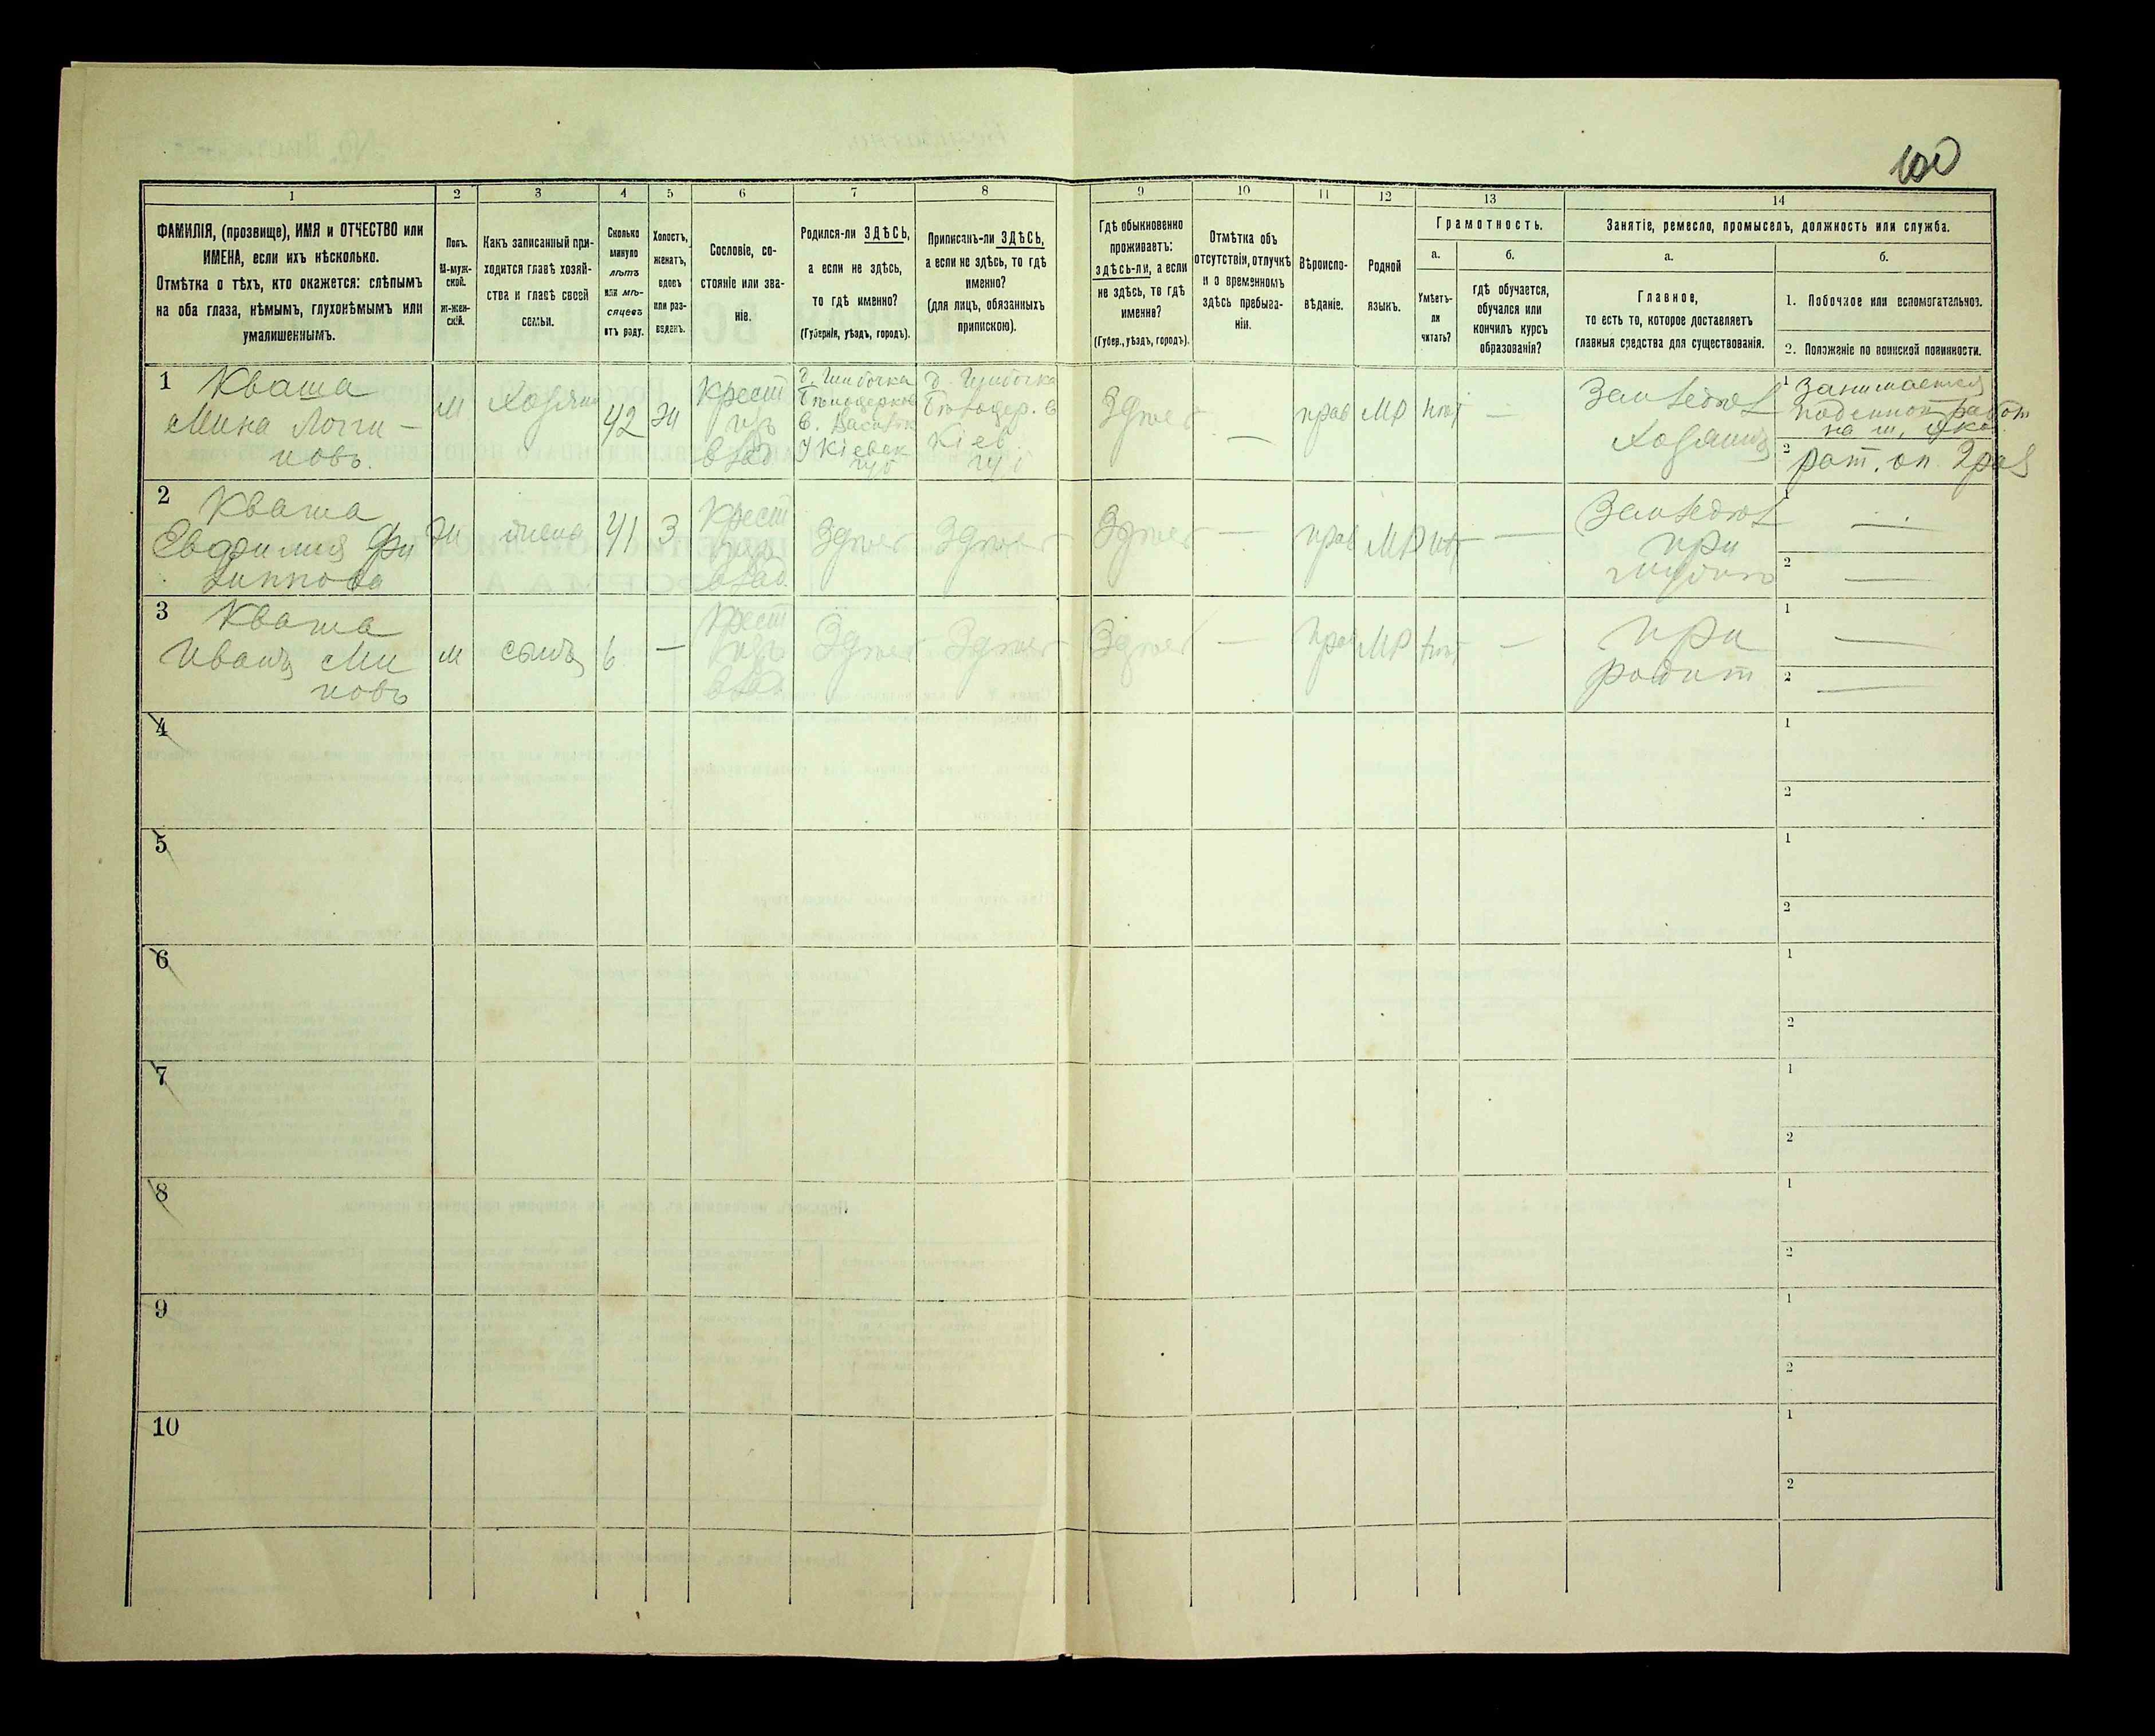 100
1
2
3
4
5
6
7
8
9
10
11
12
13
14
ФАМИЛІЯ, (прозвище), ИМЯ и ОТЧЕСТВО или
ИМЕНА, если ихъ нѣсколько.
Отмѣтка о тѣхъ, кто окажется: слѣпымъ
на оба глаза, нѣмымъ, глухонѣмымъ или
умалишеннымъ.
Полъ.
М-муж-
ской.
Ж-жен-
скій.
Какъ записанный при-
ходится главѣ хозяй-
ства и главѣ своей
семьи.
Сколько
минуло
лѣтъ
или мѣ-
сяцевъ
отъ роду.
Холостъ,
женатъ,
вдовъ
или раз-
веденъ.
Сословіе, со-
стояніе или зва-
ніе.
Родился-ли ЗДѢСЬ,
а если не здѣсь,
то гдѣ именно?
(Губернія, уѣздъ, городъ).
Приписанъ-ли ЗДѢСЬ,
а если не здѣсь, то гдѣ
именно?
(для лицъ, обязанныхъ
припискою).
Гдѣ обыкновенно
проживаетъ:
здѣсь-ли, а если
не здѣсь, то гдѣ
именно?
(Губер., уѣздъ, городъ).
Отмѣтка объ
отсутствіи, отлучкѣ
и о временномъ
здѣсь пребыва-
ніи.
Вѣроиспо-
вѣданіе.
Родной
языкъ.
Грамотность.
а.
б.
Умѣетъ-
ли
читать?
гдѣ обучается,
обучался или
кончилъ курсъ
образованія?
Занятіе, ремесло, промыселъ, должность или служба.
а.
б.
Главное,
то есть то, которое доставляетъ
главныя средства для существованія.
1. Побочное или вспомогательное.
2. Положеніе по воинской повинности.
1
Кваша
Мина Логги-
новъ.
М
Хозяинъ
42
Ж
Крест
изъ
влад.
Кіевск
губ
Кіев.
губ
Здѣсь
—
прав
МР
нѣт
—
Хозяинъ
1 Занимается
поденной работ
2
рат. оп. 2 раз
2
Кваша
Евфимия Фи
липпова
Ж
жена
41
З
Крест
изъ
влад.
Здѣсь
Здѣсь
Здѣсь
—
прав
МР
нѣт
—
при
1
—
2
—
3
Кваша
Иванъ Ми
новъ
М
сынъ
6
—
Крест
изъ
влад.
Здѣсь
Здѣсь
Здѣсь
—
прав
МР
нѣт
—
при
родит
1
—
2
—
4
1
2
5
1
2
6
1
2
7
1
2
8
1
2
9
1
2
10
1
2